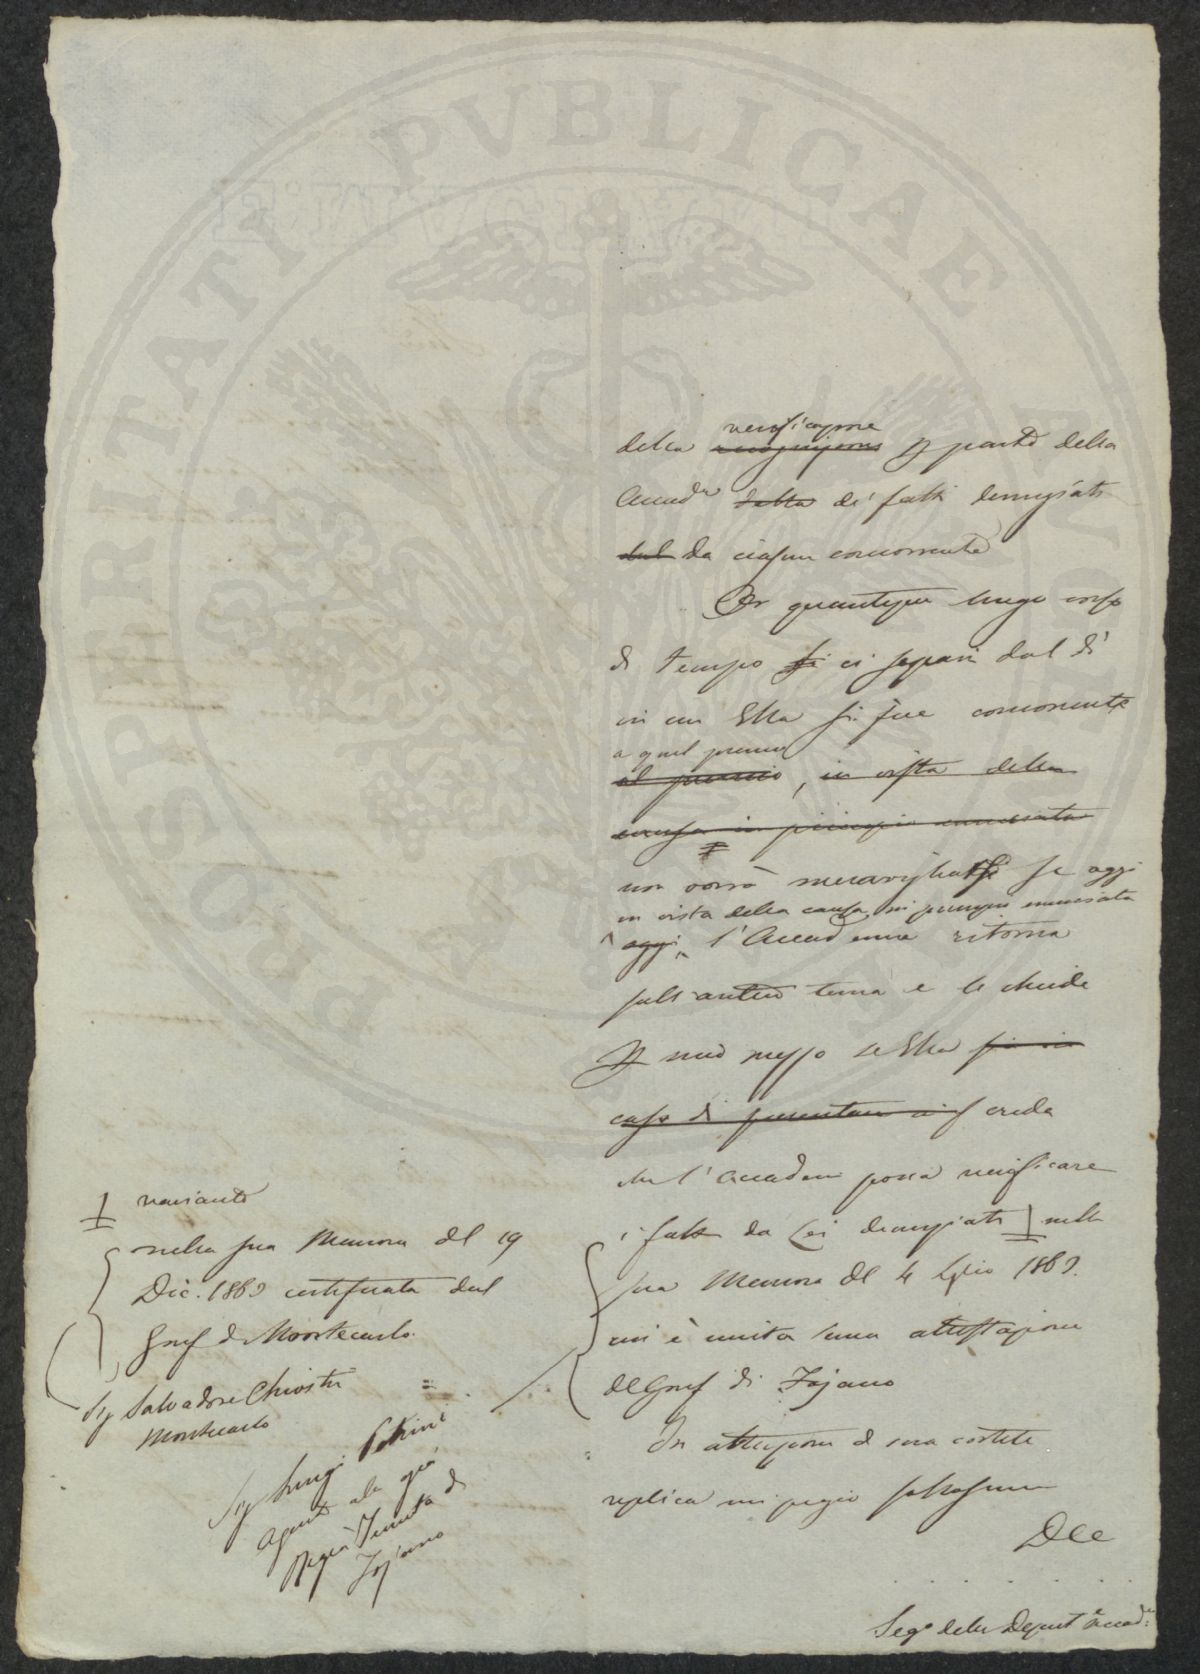 PROSPERITATI PVBLICAE
verificazione
della recognizione p parte della
Accad.a della de' fatti denunziati
dal da ciascun concorrente
Or quantunque lungo corso
di tempo si ci separi dal dì
in cui Ella si fece concorrente
a quel premio
al premio, in vista della
causa in principio enunciata
non vorrà meravigliarsi se oggi
in vista della causa in principio enunciata
oggi l'Accademia ritorna
sull'antico tema e le chiede
p mio mezzo se Ella sia in
caso di presentare creda
che l'Accadem possa verificare
i fatti da Lei denunziati nella
sua Memoria del 4 1869.
cui è unita una attestazione
del Gonf di Fojano
In attenzione di sua cortese
replica mi pregio
Dee
Seg.o della Deput.e Accad.
variante
nella sua Memoria del 19
Dic. 1869 certificata dal
Gonf di Montecarlo.
Sig Salvadore Chiostri
Montecarlo
Sig Luigi
Agente alla già
Regia Tenuta di
Fojano